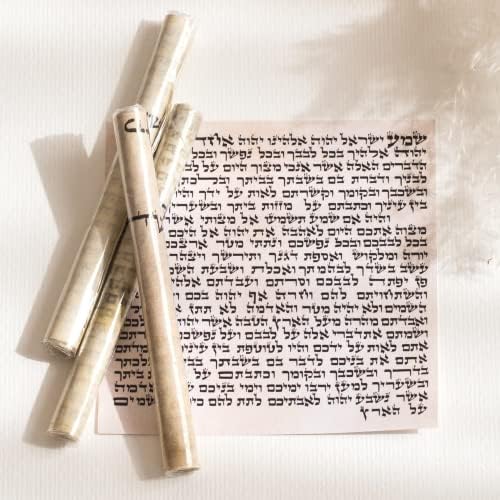 שמע ישראל יהוה אלהינו יהוה אחד
יהוה אלהיך בכל לבבך ובכל נפשך ובכל
הדברים האלה אשר אנכי מצוך היום על
לבניך ודברת בם בשבתך בביתך
ובשכבך ובקומך וקשרתם לאות על ידך והיו
בין עיניך וכתבתם על מזזות ביתך ובשעריך
והיה אם שמע תשמעו אל מצותי אשר
מצוה אתכם היום לאהבה את יהוה
בכל לבבכם ובכל נפשכם ונתתי מטר ארצכם
יורה ומלקוש ואספת דגנך ותירשך
עשב בשדך לבהמתך ואכלת ושבעת
פן יפתה לבבכם וסרתם ועבדתם
והשתחויתם להם וחרה אף יהוה בכם
השמים ולא יהיה מטר והאדמה לא תתן
ואבדתם מהרה מעל הארץ הטבה אשר יהוה
ושמתם את דברי אלה על לבבכם ועל
אתם לאות על ידכם והיו לטוטפת בין עיניכם
אתם את בניכם לדבר בם בשבתך בביתך
בדרך ובשכבך ובקומך וכתבתם על ביתך
ובשעריך למען ירבו ימיכם וימי בניכם על האדמה
אשר נשבע יהוה לאבתיכם לתת להם השמים
על הארץ